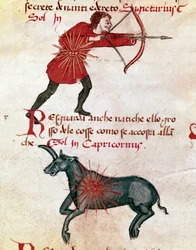 secrete denanti edreto Sagictarius C
Sol in
Reguarda anche natiche ello gro
sso dele cosse como se accosta alla
che Sol in Capricornus.